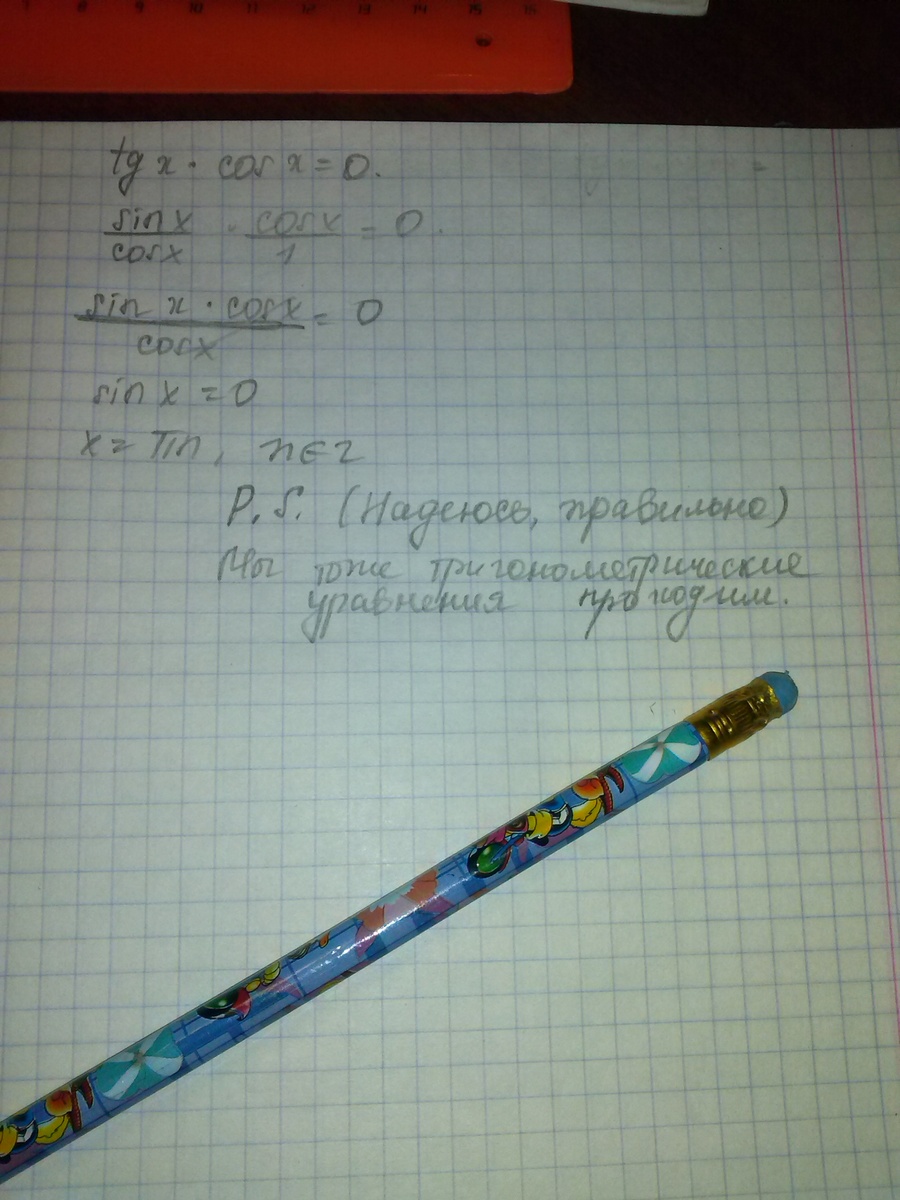 7 8 9 10 11 12 13 14 15 16
tg x · cos x = 0.
sin x / cos x · cos x / 1 = 0.
sin x · cos x / cos x = 0
sin x = 0
x = πn, n ∈ z
P.S. (Надеюсь, правильно)
Мы тоже тригонометрические
уравнения проходим.